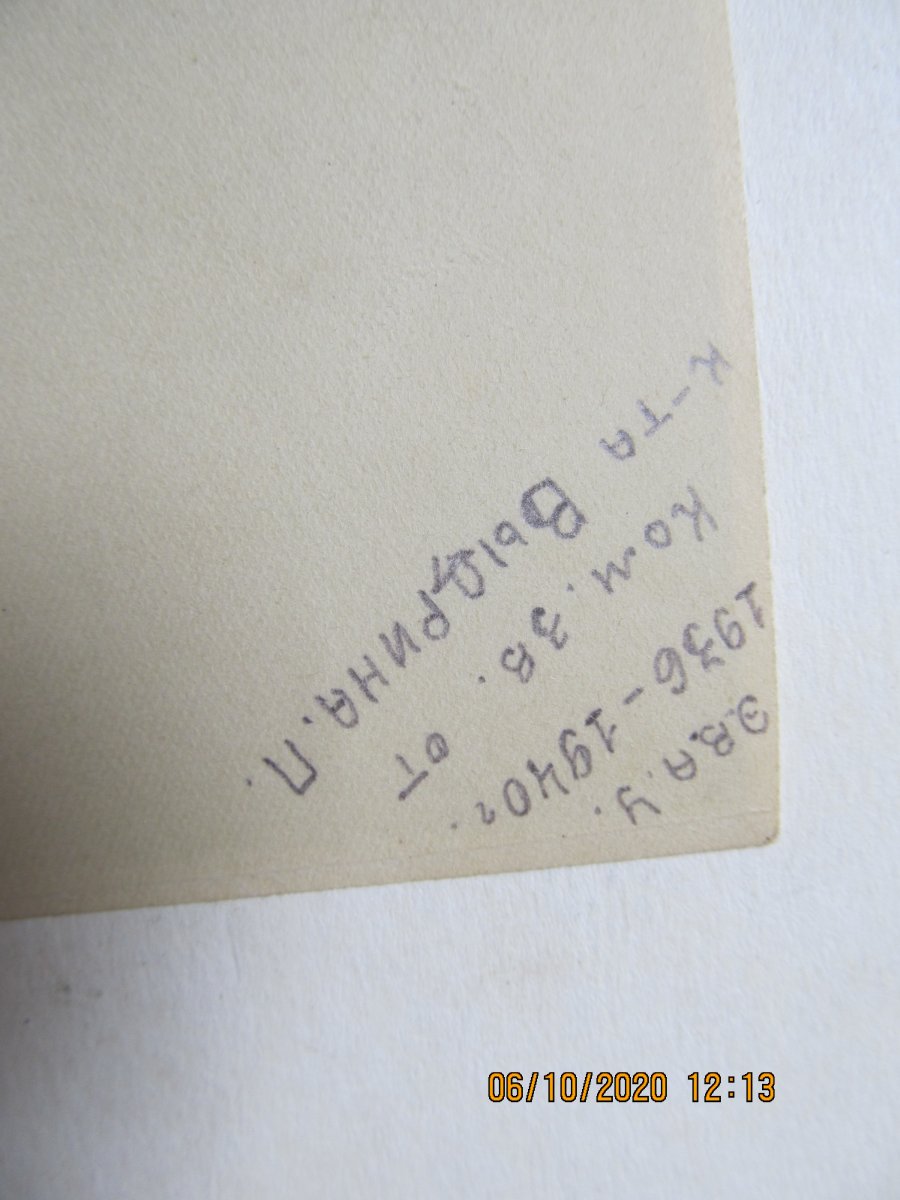 Э.В.А.У.
1936-1940г.
Ком. Зв. от
К-та Выдрина.П.
06/10/2020 12:13